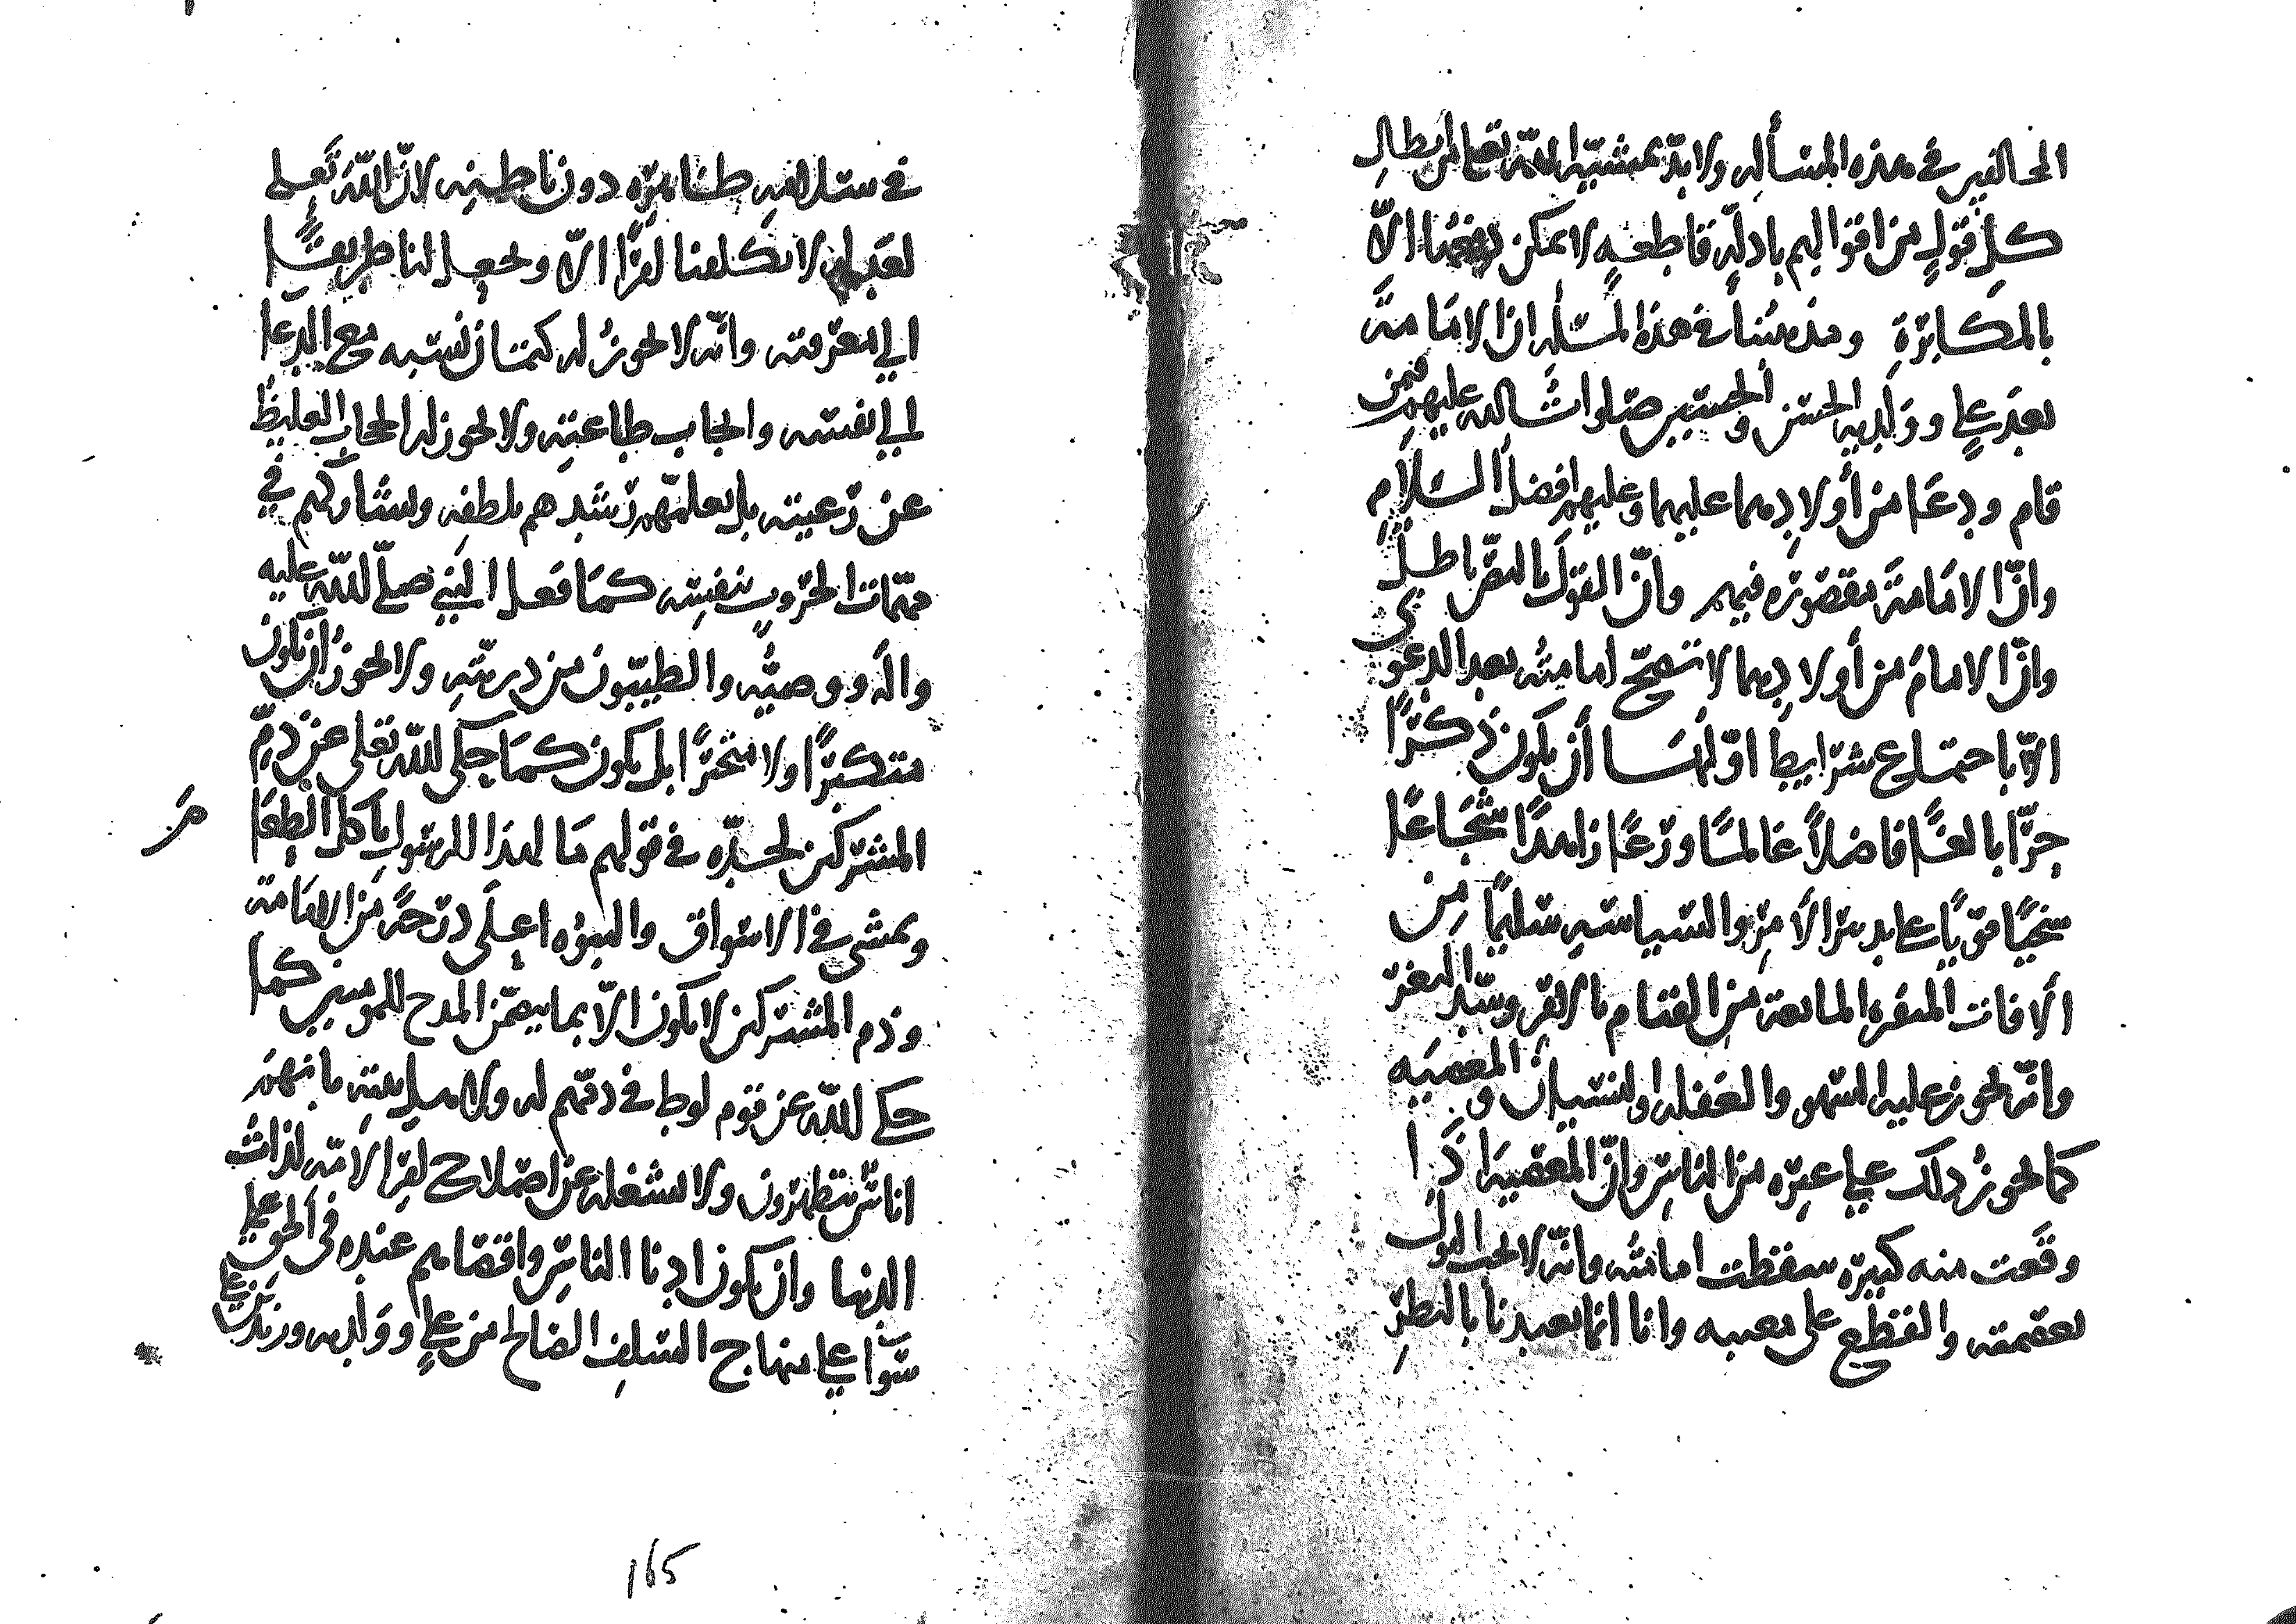 المخالفين في هذه المسألة ولا بد بمشية الله تعالى من ابطال
كل قول من اقوالهم بادلة قاطعة لا يمكن دفعها الا
بالمكابرة ومذهبنا في هذه المسألة ان الامامة
بعد علي وولديه الحسن والحسين صلوات الله عليهم فيمن
قام ودعا من أولادهما عليهما وعليهم افضل السلام
وان الامامة مقصورة فيهم وان القول بالنص باطل
وان الامام من أولادهما لا تصح امامته بعد الدعوى
الا باجتماع شرايط اولها أن يكون ذكرا
حرا بالغا فاضلا عالما ورعا زاهدا شجاعا
سخيا قويا على تدبير الأمر والسياسة سليما من
الآفات المنفرة المانعة من القيام بالامر وسد الثغر
وانه يجوز عليه السهو والغفلة والنسيان والمعصية
كما يجوز ذلك على غيره من الناس وان المعصية اذا
وقعت منه كبيرة سقطت امامته وانه لا يجب القول
بعصمته والقطع على مغيبه وانا انما تعبدنا بالنظر
في سلامة ظاهره دون باطنه لان الله تعلى
لعدله لا يكلفنا امرا الا ويجعل لنا طريقا
الى معرفته وانه لا يجوز له كتمان نفسه مع الدعا
الى نفسه وايجاب طاعته ولا يجوز له الحجاب الغليظ
عن رعيته بل يعلمهم رشدهم بلطفه ويشاركهم في
مهمات الحروب بنفسه كما فعل النبي صلى الله عليه
واله ووصيه والطيبون من ذريته ولا يجوز أن يكون
متكبرا ولا متجبرا بل يكون كما حكى الله تعلى عن ذم
المشركين لجده في قولهم ما لهذا الرسول ياكل الطعام
ويمشي في الاسواق والنبوه اعلى درجة من الامامة
وذم المشركين لا يكون الا بما يتضمن المدح للمومنين كما
حكى الله عن قوم لوط في ذمهم له ولاهل بيته بانهم
اناس يتطهرون ولا تشغله عن اصلاح امر الامة لذات
الدنيا وان يكون ادنا الناس واقصاهم عنده في الحق على
سوا على منهاج السلف الصالح من علي وولديه وزيد بن علي
165